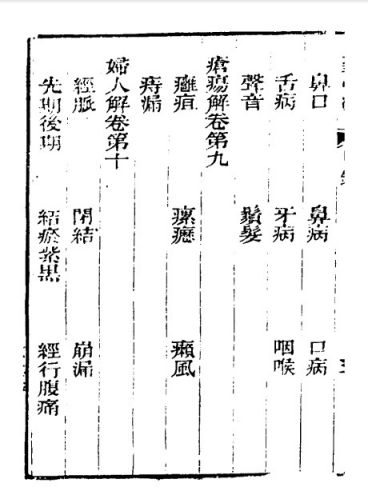 鼻口 鼻病 口病
舌病 牙病 咽喉
聲音 鬚髮
瘡瘍解卷第九
癰疽 瘰癧 癩風
痔漏
婦人解卷第十
經脈 閉結 崩漏
先期後期 結瘀紫黑 經行腹痛